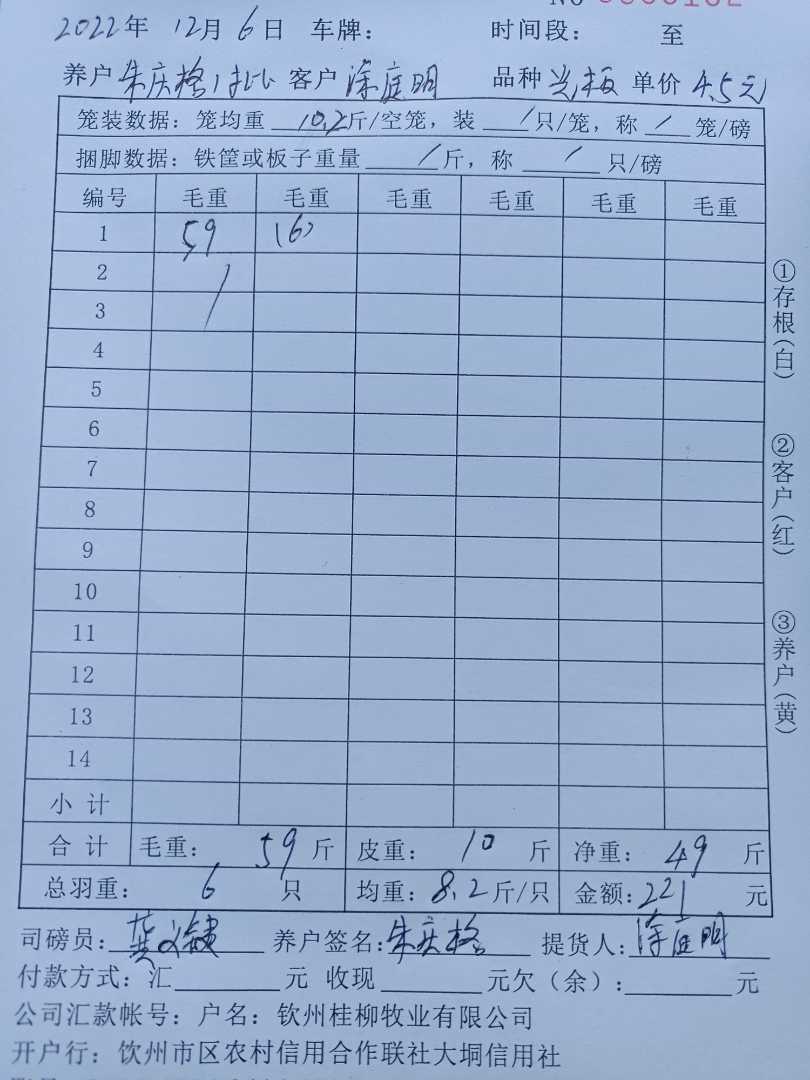 2022年 12月 6日 车牌： 时间段： 至
养户 朱庆格 1批 客户 涂庭明 品种 光板 单价 4.5元
笼装数据：笼均重 10.2斤/空笼，装 / 只/笼，称 / 笼/磅
捆脚数据：铁筐或板子重量 / 斤，称 / 只/磅
编号 毛重 毛重 毛重 毛重 毛重 毛重
1 59 (6)
2 /
3
4
5
6
7
8
9
10
11
12
13
14
小计
合计 毛重： 59 斤 皮重： 10 斤 净重： 49 斤
总羽重： 6 只 均重：8.2斤/只 金额：221 元
司磅员： 养户签名：朱庆格 提货人：涂庭明
付款方式：汇 元 收现 元欠（余）： 元
公司汇款帐号：户名：钦州桂柳牧业有限公司
开户行：钦州市区农村信用合作联社大垌信用社
①存根（白）
②客户（红）
③养户（黄）